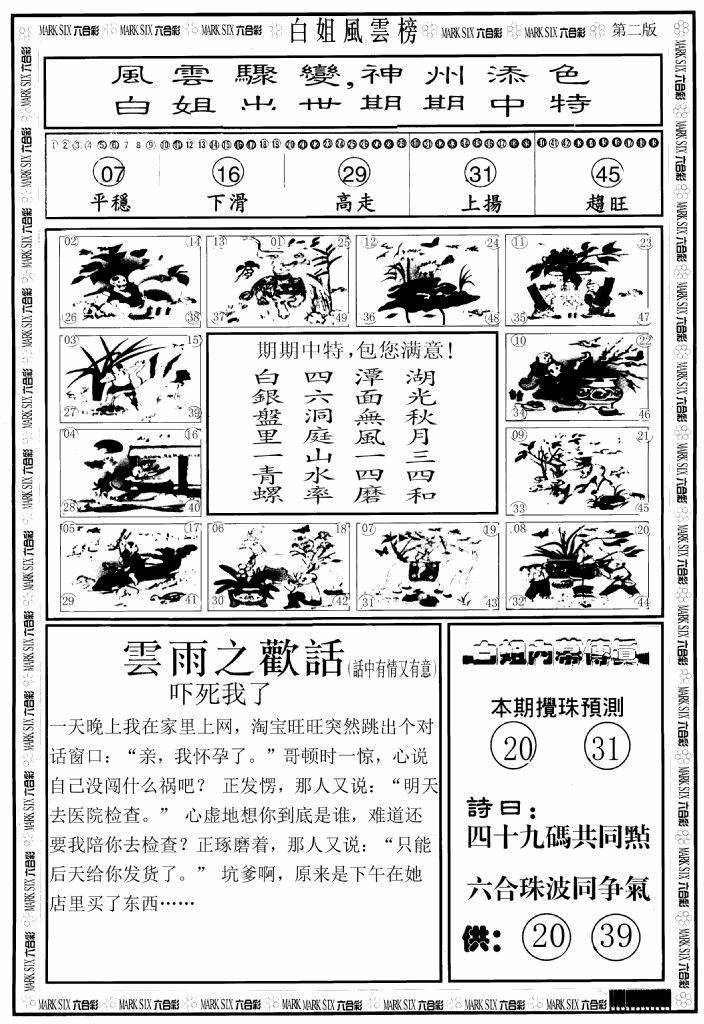 MARK SIX 六合彩 MARK SIX 六合彩 白姐風雲榜 MARK SIX 六合彩 MARK SIX 六合彩 第二版
風雲驟變,神州添色
白姐出世期期中特
07 16 29 31 45
平穩 下滑 高走 上揚 趨旺
02 14 13 01 25 12 24 11 23
26 38 37 49 36 48 35 47
03 15
27 39
04 16
28 40
期期中特,包您满意!
湖光秋月三四和
潭面無風一四磨
四六洞庭山水率
白銀盤里一青螺
10 22
34 46
09 21
33 45
05 17 06 18 07 19 08 20
29 41 30 42 31 43 32 44
雲雨之歡話(話中有情又有意)
吓死我了
一天晚上我在家里上网，淘宝旺旺突然跳出个对
话窗口：“亲，我怀孕了。”哥顿时一惊，心说
自己没闯什么祸吧？ 正发愣，那人又说：“明天
去医院检查。” 心虚地想你到底是谁，难道还
要我陪你去检查？正琢磨着，那人又说：“只能
后天给你发货了。” 坑爹啊，原来是下午在她
店里买了东西……
白姐内幕傳真
本期攪珠預測
20 31
詩曰：
四十九碼共同點
六合珠波同争氣
供： 20 39
MARK SIX 六合彩 MARK SIX 六合彩 MARK SIX 六合彩 MARK SIX 六合彩 MARK SIX 六合彩 MARK SIX 六合彩 MARK SIX 六合彩